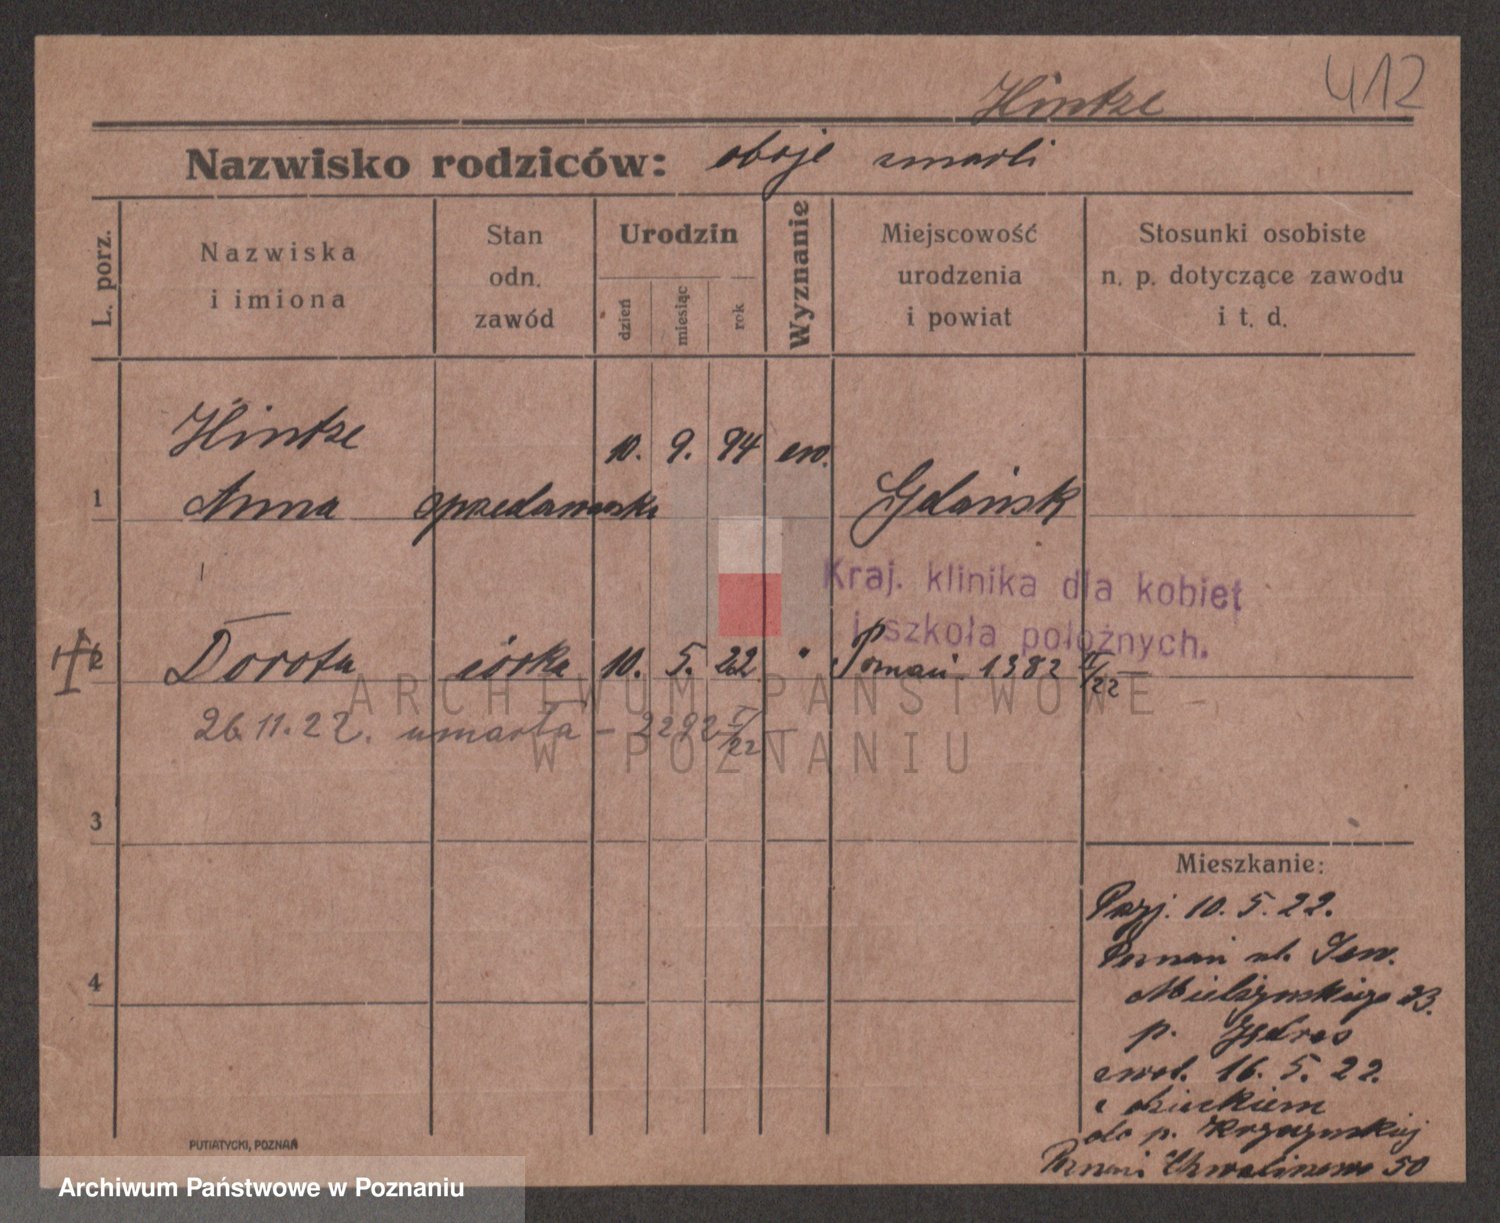 412
Hintze
Nazwisko rodziców: oboje zmarli
L. porz.
Nazwiska
i imiona
Stan
odn.
zawód
Urodzin
dzień
miesiąc
rok
Wyznanie
Miejscowość
urodzenia
i powiat
Stosunki osobiste
n. p. dotyczące zawodu
i t. d.
Hintze 10. 9. 94 ew.
1 Anna Gdańsk
Kraj. klinika dla kobiet
i szkoła położnych.
2 Dorota córka 10. 5. 22 " Poznań 1382 /22
26.11.22. umarła – 2292 /22 –
ARCHIWUM PAŃSTWOWE
W POZNANIU
3
Mieszkanie:
Przj. 10. 5. 22.
Poznań ul. Sew.
4
Mielżyńskiego 23.
p.
zwol. 16. 5. 22.
z dzieckiem
do p.
Poznań 50
PUTIATYCKI, POZNAŃ
Archiwum Państwowe w Poznaniu